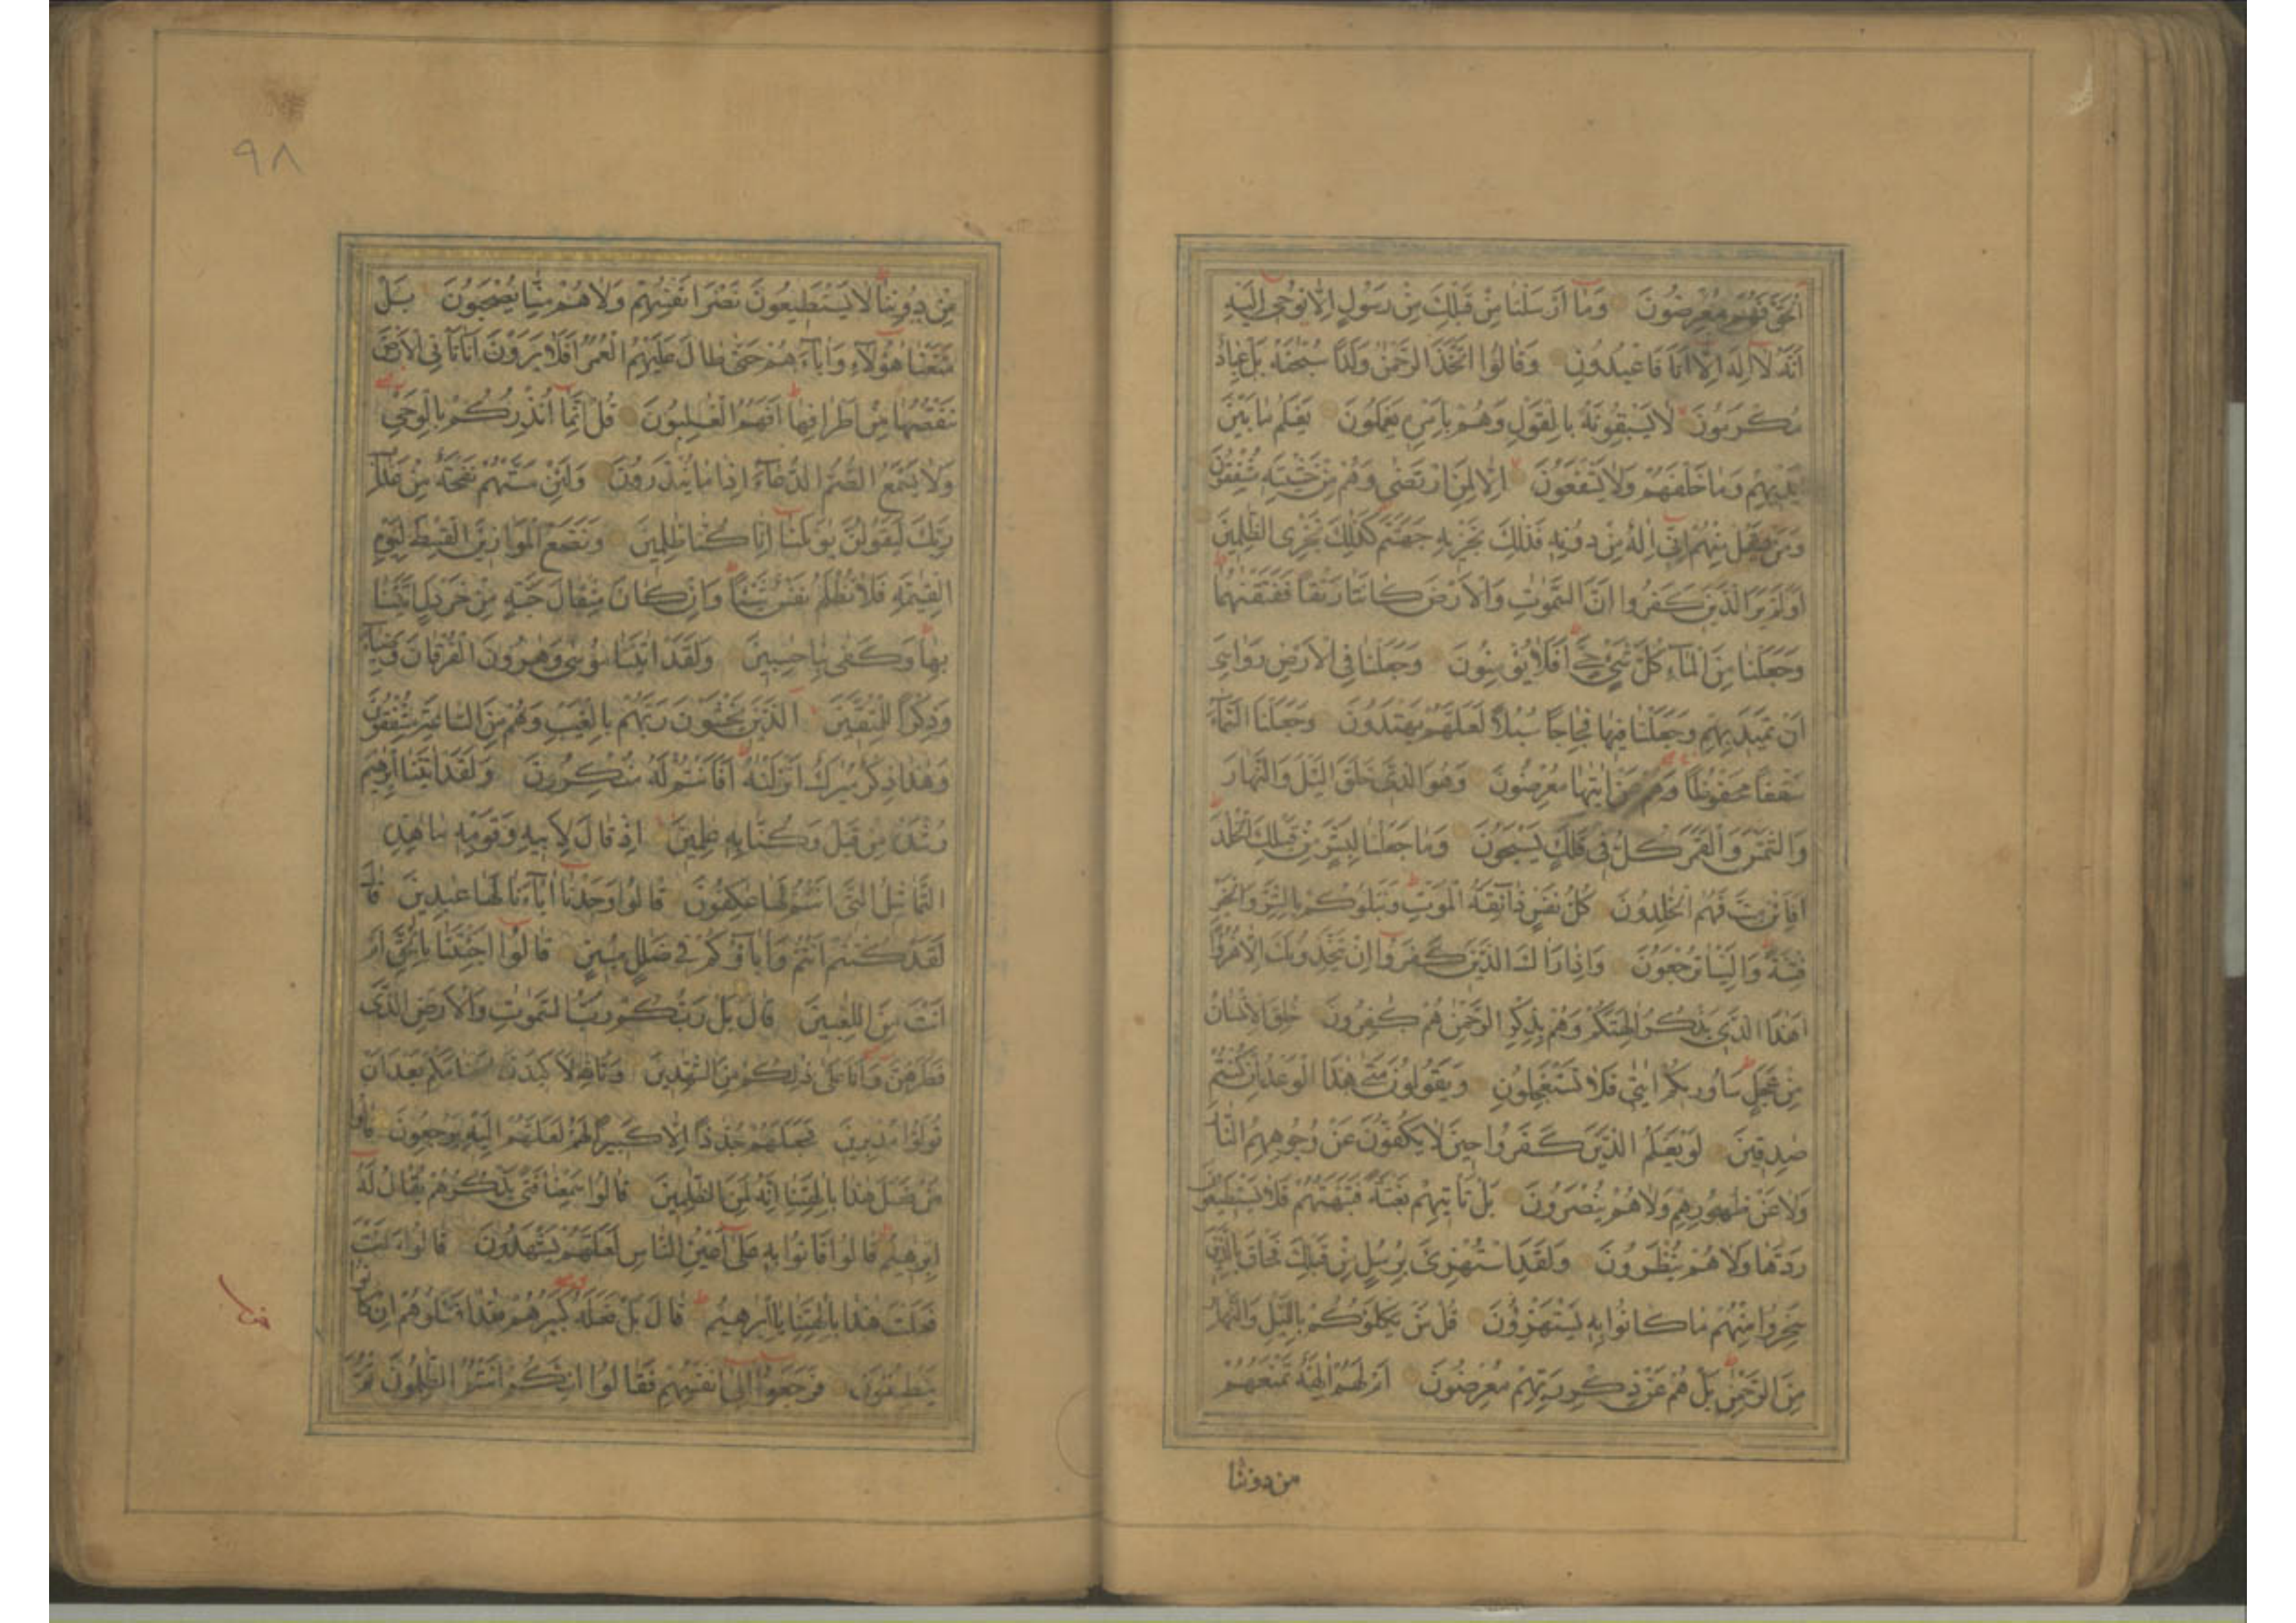 الْحَقَّ فَهُمْ مُعْرِضُونَ وَمَا أَرْسَلْنَا مِنْ قَبْلِكَ مِنْ رَسُولٍ إِلَّا نُوحِي إِلَيْهِ
أَنَّهُ لَا إِلَهَ إِلَّا أَنَا فَاعْبُدُونِ وَقَالُوا اتَّخَذَ الرَّحْمَنُ وَلَدًا سُبْحَنَهُ بَلْ عِبَادٌ
مُكْرَمُونَ لَا يَسْبِقُونَهُ بِالْقَوْلِ وَهُمْ بِأَمْرِهِ يَعْمَلُونَ يَعْلَمُ مَا بَيْنَ
أَيْدِيهِمْ وَمَا خَلْفَهُمْ وَلَا يَشْفَعُونَ إِلَّا لِمَنِ ارْتَضَى وَهُمْ مِنْ خَشْيَتِهِ مُشْفِقُونَ
وَمَنْ يَقُلْ مِنْهُمْ إِنِّي إِلَهٌ مِنْ دُونِهِ فَذَلِكَ نَجْزِيهِ جَهَنَّمَ كَذَلِكَ نَجْزِي الظَّلِمِينَ
أَوَلَمْ يَرَ الَّذِينَ كَفَرُوا أَنَّ السَّمَوَتِ وَالْأَرْضَ كَانَتَا رَتْقًا فَفَتَقْنَهُمَا
وَجَعَلْنَا مِنَ الْمَاءِ كُلَّ شَيْءٍ حَيٍّ أَفَلَا يُؤْمِنُونَ وَجَعَلْنَا فِي الْأَرْضِ رَوَاسِيَ
أَنْ تَمِيدَ بِهِمْ وَجَعَلْنَا فِيهَا فِجَاجًا سُبُلًا لَعَلَّهُمْ يَهْتَدُونَ وَجَعَلْنَا السَّمَاءَ
سَقْفًا مَحْفُوظًا وَهُمْ عَنْ آيَتِهَا مُعْرِضُونَ وَهُوَ الَّذِي خَلَقَ الَّيْلَ وَالنَّهَارَ
وَالشَّمْسَ وَالْقَمَرَ كُلٌّ فِي فَلَكٍ يَسْبَحُونَ وَمَا جَعَلْنَا لِبَشَرٍ مِنْ قَبْلِكَ الْخُلْدَ
أَفَإِنْ مِتَّ فَهُمُ الْخَلِدُونَ كُلُّ نَفْسٍ ذَائِقَةُ الْمَوْتِ وَنَبْلُوكُمْ بِالشَّرِّ وَالْخَيْرِ
فِتْنَةً وَإِلَيْنَا تُرْجَعُونَ وَإِذَا رَآكَ الَّذِينَ كَفَرُوا إِنْ يَتَّخِذُونَكَ إِلَّا هُزُوًا
أَهَذَا الَّذِي يَذْكُرُ آلِهَتَكُمْ وَهُمْ بِذِكْرِ الرَّحْمَنِ هُمْ كَفِرُونَ خُلِقَ الْإِنْسَانُ
مِنْ عَجَلٍ سَأُورِيكُمْ آيَتِي فَلَا تَسْتَعْجِلُونِ وَيَقُولُونَ مَتَى هَذَا الْوَعْدُ إِنْ كُنْتُمْ
صَدِقِينَ لَوْ يَعْلَمُ الَّذِينَ كَفَرُوا حِينَ لَا يَكُفُّونَ عَنْ وُجُوهِهِمُ النَّارَ
وَلَا عَنْ ظُهُورِهِمْ وَلَا هُمْ يُنْصَرُونَ بَلْ تَأْتِيهِمْ بَغْتَةً فَتَبْهَتُهُمْ فَلَا يَسْتَطِيعُونَ
رَدَّهَا وَلَا هُمْ يُنْظَرُونَ وَلَقَدِ اسْتُهْزِئَ بِرُسُلٍ مِنْ قَبْلِكَ فَحَاقَ بِالَّذِينَ
سَخِرُوا مِنْهُمْ مَا كَانُوا بِهِ يَسْتَهْزِؤُنَ قُلْ مَنْ يَكْلَؤُكُمْ بِالَّيْلِ وَالنَّهَارِ
مِنَ الرَّحْمَنِ بَلْ هُمْ عَنْ ذِكْرِ رَبِّهِمْ مُعْرِضُونَ أَمْ لَهُمْ آلِهَةٌ تَمْنَعُهُمْ
من دوننا
٩٨
مِنْ دُونِنَا لَا يَسْتَطِيعُونَ نَصْرَ أَنْفُسِهِمْ وَلَا هُمْ مِنَّا يُصْحَبُونَ بَلْ
مَتَّعْنَا هَؤُلَاءِ وَآبَاءَهُمْ حَتَّى طَالَ عَلَيْهِمُ الْعُمُرُ أَفَلَا يَرَوْنَ أَنَّا نَأْتِي الْأَرْضَ
نَنْقُصُهَا مِنْ أَطْرَافِهَا أَفَهُمُ الْغَلِبُونَ قُلْ إِنَّمَا أُنْذِرُكُمْ بِالْوَحْيِ
وَلَا يَسْمَعُ الصُّمُّ الدُّعَاءَ إِذَا مَا يُنْذَرُونَ وَلَئِنْ مَسَّتْهُمْ نَفْحَةٌ مِنْ عَذَابِ
رَبِّكَ لَيَقُولُنَّ يَوَيْلَنَا إِنَّا كُنَّا ظَلِمِينَ وَنَضَعُ الْمَوَازِينَ الْقِسْطَ لِيَوْمِ
الْقِيَمَةِ فَلَا تُظْلَمُ نَفْسٌ شَيْئًا وَإِنْ كَانَ مِثْقَالَ حَبَّةٍ مِنْ خَرْدَلٍ أَتَيْنَا
بِهَا وَكَفَى بِنَا حَسِبِينَ وَلَقَدْ آتَيْنَا مُوسَى وَهَرُونَ الْفُرْقَانَ وَضِيَاءً
وَذِكْرًا لِلْمُتَّقِينَ الَّذِينَ يَخْشَوْنَ رَبَّهُمْ بِالْغَيْبِ وَهُمْ مِنَ السَّاعَةِ مُشْفِقُونَ
وَهَذَا ذِكْرٌ مُبَرَكٌ أَنْزَلْنَهُ أَفَأَنْتُمْ لَهُ مُنْكِرُونَ وَلَقَدْ آتَيْنَا إِبْرَهِيمَ
رُشْدَهُ مِنْ قَبْلُ وَكُنَّا بِهِ عَلِمِينَ إِذْ قَالَ لِأَبِيهِ وَقَوْمِهِ مَا هَذِهِ
التَّمَاثِيلُ الَّتِي أَنْتُمْ لَهَا عَكِفُونَ قَالُوا وَجَدْنَا آبَاءَنَا لَهَا عَبِدِينَ قَالَ
لَقَدْ كُنْتُمْ أَنْتُمْ وَآبَاؤُكُمْ فِي ضَلَلٍ مُبِينٍ قَالُوا أَجِئْتَنَا بِالْحَقِّ أَمْ
أَنْتَ مِنَ اللَّعِبِينَ قَالَ بَلْ رَبُّكُمْ رَبُّ السَّمَوَتِ وَالْأَرْضِ الَّذِي
فَطَرَهُنَّ وَأَنَا عَلَى ذَلِكُمْ مِنَ الشَّهِدِينَ وَتَاللَّهِ لَأَكِيدَنَّ أَصْنَامَكُمْ بَعْدَ أَنْ
تُوَلُّوا مُدْبِرِينَ فَجَعَلَهُمْ جُذَذًا إِلَّا كَبِيرًا لَهُمْ لَعَلَّهُمْ إِلَيْهِ يَرْجِعُونَ قَالُوا
مَنْ فَعَلَ هَذَا بِآلِهَتِنَا إِنَّهُ لَمِنَ الظَّلِمِينَ قَالُوا سَمِعْنَا فَتًى يَذْكُرُهُمْ يُقَالُ لَهُ
إِبْرَهِيمُ قَالُوا فَأْتُوا بِهِ عَلَى أَعْيُنِ النَّاسِ لَعَلَّهُمْ يَشْهَدُونَ قَالُوا ءَأَنْتَ
فَعَلْتَ هَذَا بِآلِهَتِنَا يَا إِبْرَهِيمُ قَالَ بَلْ فَعَلَهُ كَبِيرُهُمْ هَذَا فَسْئَلُوهُمْ إِنْ كَانُوا
يَنْطِقُونَ فَرَجَعُوا إِلَى أَنْفُسِهِمْ فَقَالُوا إِنَّكُمْ أَنْتُمُ الظَّلِمُونَ ثُمَّ